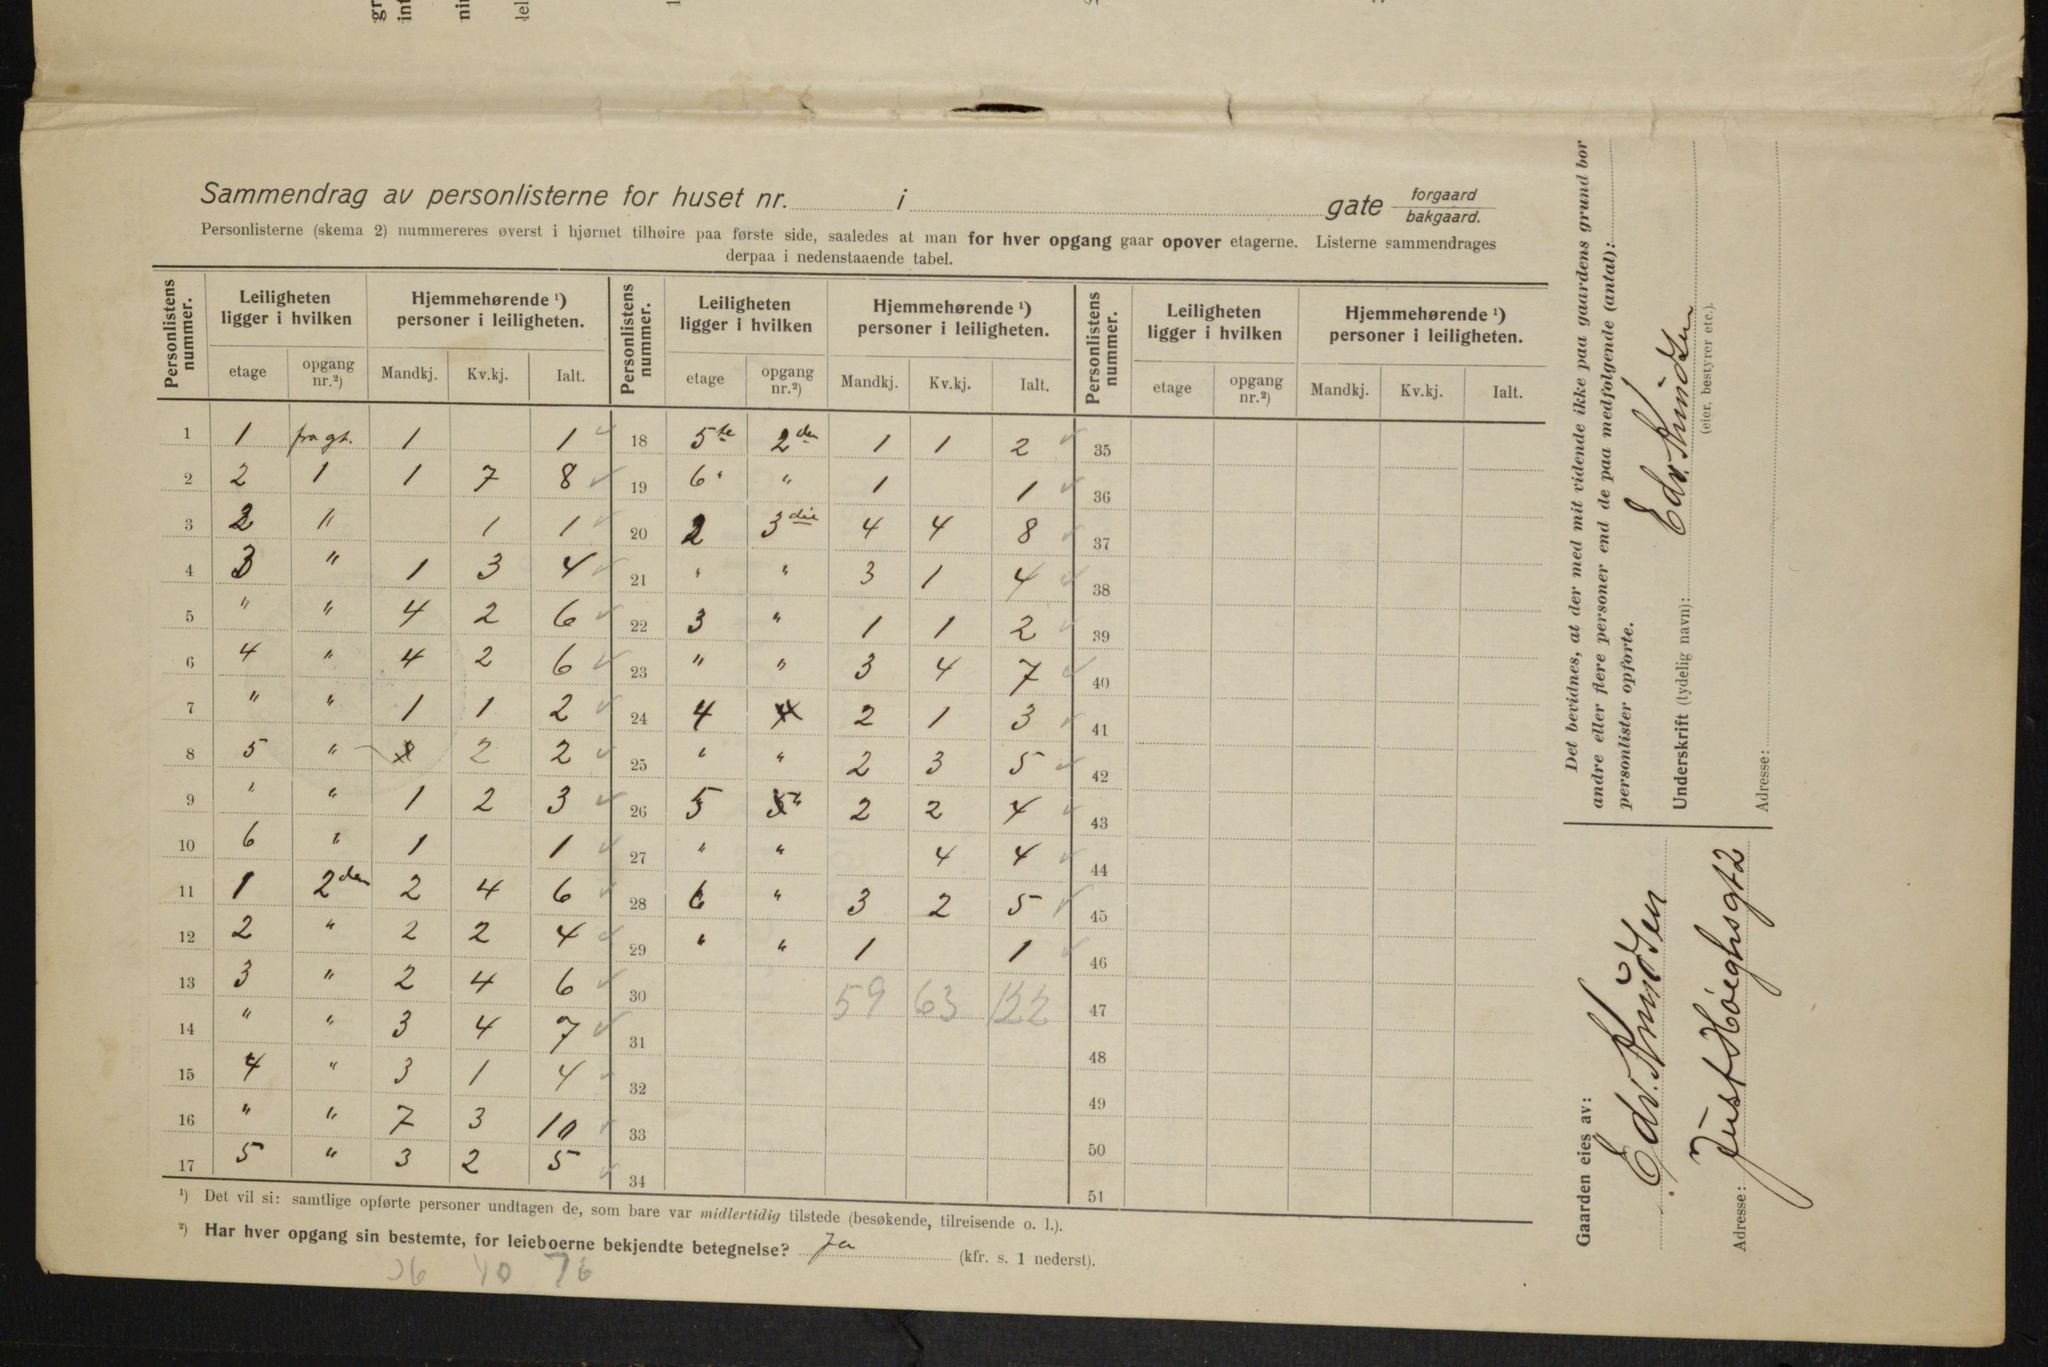 Sammendrag av personlisterne for huset nr. i gate forgaard bakgaard.
Personlisterne (skema 2) nummereres øverst i hjørnet tilhøire paa første side, saaledes at man for hver opgang gaar opover etagerne. Listerne sammendrages
derpaa i nedenstaaende tabel.
Personlistens nummer. Leiligheten ligger i hvilken Hjemmehørende ¹) personer i leiligheten. Personlistens nummer. Leiligheten ligger i hvilken Hjemmehørende ¹) personer i leiligheten. Personlistens nummer. Leiligheten ligger i hvilken Hjemmehørende ¹) personer i leiligheten.
etage opgang nr.²) Mandkj. Kv.kj. Ialt. etage opgang nr.²) Mandkj. Kv.kj. Ialt. etage opgang nr.²) Mandkj. Kv.kj. Ialt.
1 1 fra gt. 1 1 18 5te 2den 1 1 2 35
2 2 1 1 7 8 19 6 " " 1 1 36
3 2 " 1 1 20 2 3die 4 4 8 37
4 3 " 1 3 4 21 " " 3 1 4 38
5 " " 4 2 6 22 3 " 1 1 2 39
6 4 " 4 2 6 23 " " 3 4 7 40
7 " " 1 1 2 24 4 2 1 3 41
8 5 " 2 2 25 " " 2 3 5 42
9 " " 1 2 3 26 5 " 2 2 4 43
10 6 " 1 1 27 " " 4 4 44
11 1 2den 2 4 6 28 6 " 3 2 5 45
12 2 " 2 2 4 29 " " 1 1 46
13 3 " 2 4 6 30 59 63 122 47
14 " " 3 4 7 31 48
15 4 " 3 1 4 32 49
16 " " 7 3 10 33 50
17 5 " 3 2 5 34 51
¹) Det vil si: samtlige opførte personer undtagen de, som bare var midlertidig tilstede (besøkende, tilreisende o. l.).
²) Har hver opgang sin bestemte, for leieboerne bekjendte betegnelse? Ja (kfr. s. 1 nederst).
40 76
Det bevidnes, at der med mit vidende ikke paa gaardens grund bor
andre eller flere personer end de paa medfølgende (antal):
personlister opførte.
Underskrift (tydelig navn): Edv. Knudsen
(eier, bestyrer etc.).
Adresse:
Gaarden eies av:
Edv. Knudsen
Adresse: Just Høeghsgt 2